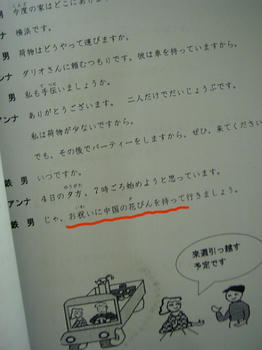 男 今度の家はどこにありま
ンナ 横浜です。
男 荷物はどうやって運びますか。
アンナ ダリオさんに頼むつもりです。彼は車を持っていますから、
男 私も手伝いましょうか。
アンナ ありがとうございます。 二人だけでだいじょうぶです。
私は荷物が少ないですから。
でも、その後でパーティーをしますから、ぜひ、来てください
鉄 男 いつですか。
アンナ 4日の夕方、7時ごろ始めようと思っています。
鉄 男 じゃ、お祝いに中国の花びんを持って行きましょう。
来週引っ越す
予定です